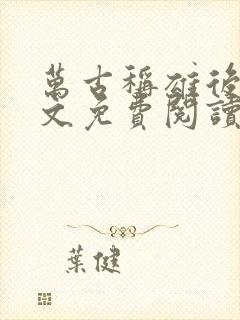 萬古稱雄後
文免費閱讀
葉健